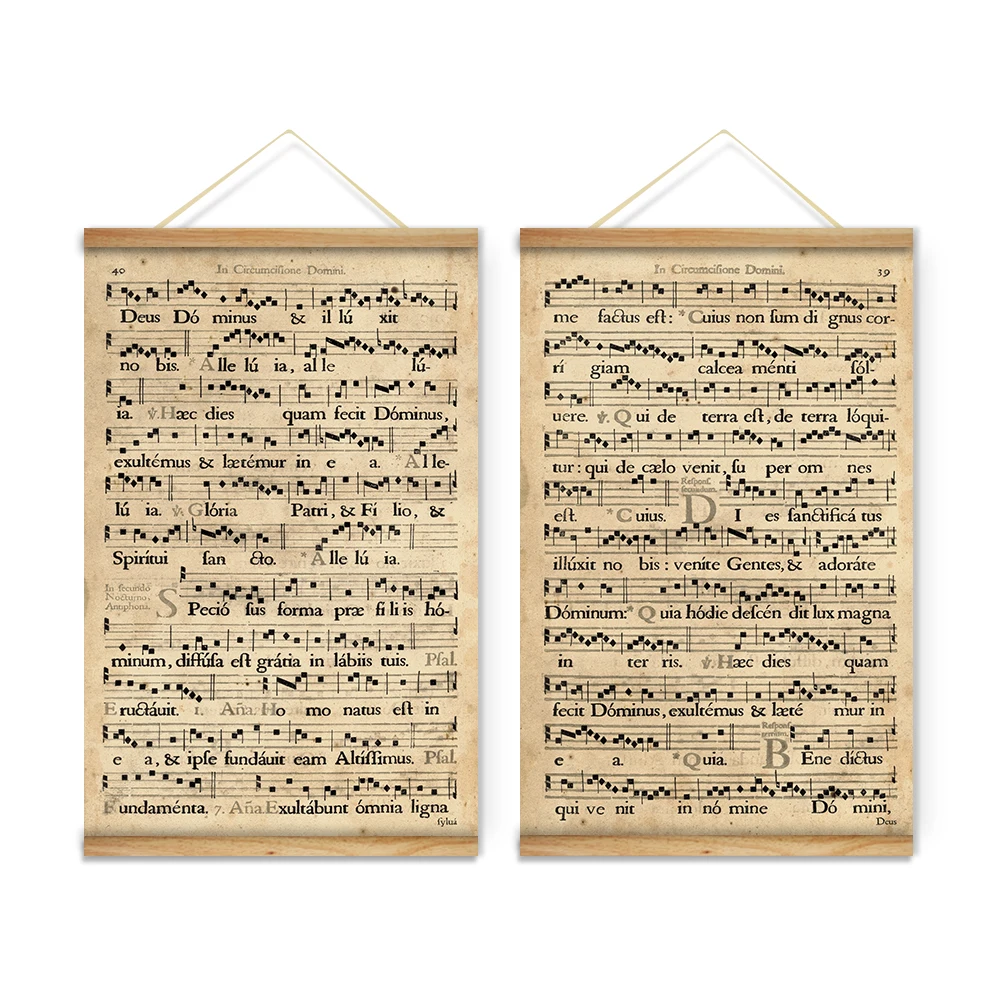 40 In Circumciſione Domini.
Deus Dó minus & il lú xit
no bis. * Alle lú ia, al le lú-
ia. ℣. Hæc dies quam fecit Dóminus,
exultémus & lætémur in e a. * Alle-
lú ia. ℣. Glória Patri, & Fí lio, &
Spirítui ſan cto. * Alle lú ia.
In ſecundo
Nocturno,
Antiphona.
SPeció ſus forma præ fi li is hó-
minum, diffúſa eſt grátia in lábiis tuis. Pſal.
Eructáuit. 1. Aña. Ho mo natus eſt in
e a, & ipſe fundáuit eam Altíſſimus. Pſal.
Fundaménta. 7. Aña. Exultábunt ómnia ligna
ſyluá
In Circumciſione Domini. 39
me factus eſt: * Cuius non ſum di gnus cor-
rí giam calcea ménti ſól-
uere. ℣. Qui de terra eſt, de terra lóqui-
tur: qui de cælo venit, ſu per om nes
Reſponſ.
ſecundum.
eſt. * Cuius. DI es ſanctificá tus
illúxit no bis: veníte Gentes, & adoráte
Dóminum: * Quia hódie deſcén dit lux magna
in ter ris. ℣. Hæc dies quam
fecit Dóminus, exultémus & læté mur in
Reſponſ.
tertium.
e a. * Quia. BEne díctus
qui ve nit in nó mine Dó mini,
Deus